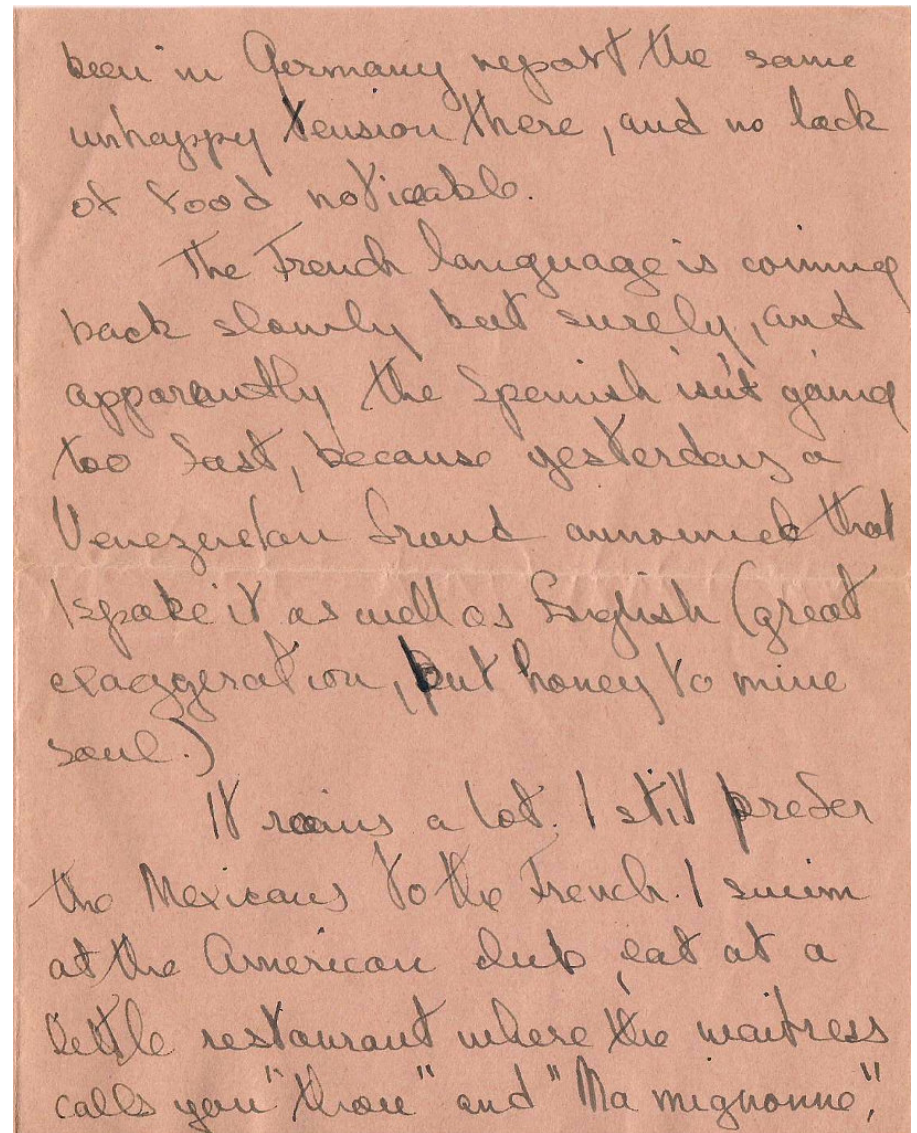 been in Germany report the same
unhappy tension there, and no lack
of food noticable.
The French language is coming
back slowly but surely, and
apparantly the Spanish isn't going
too fast, because yesterday a
Venezuelan friend announced that
I spoke it as well as English (great
exaggeration, but honey to mine
soul.)
It rains a lot. I still prefer
the Mexicans to the French. I swim
at the American club, eat at a
little restaurant where the waitress
calls you "thou" and "Ma mignonne,"